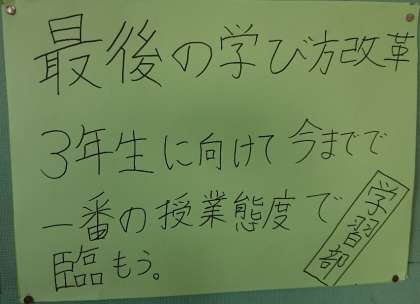 最後の学び方改革
3年生に向けて今までで
一番の授業態度で
臨もう。
学習部